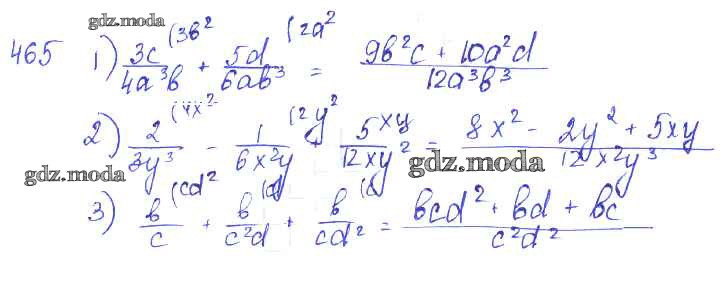 gdz.moda
465 1) 3c/4a³b (3b² + 5d/6ab³ (2a² = 9b²c + 10a²d/12a³b³
2) 2/3y³ (4x² - 1/6x²y (2y² + 5/12xy² (xy = 8x² - 2y² + 5xy/12x²y³
gdz.moda gdz.moda
3) b/c (cd² + b/c²d (d + b/cd² (c = bcd² + bd + bc/c²d²